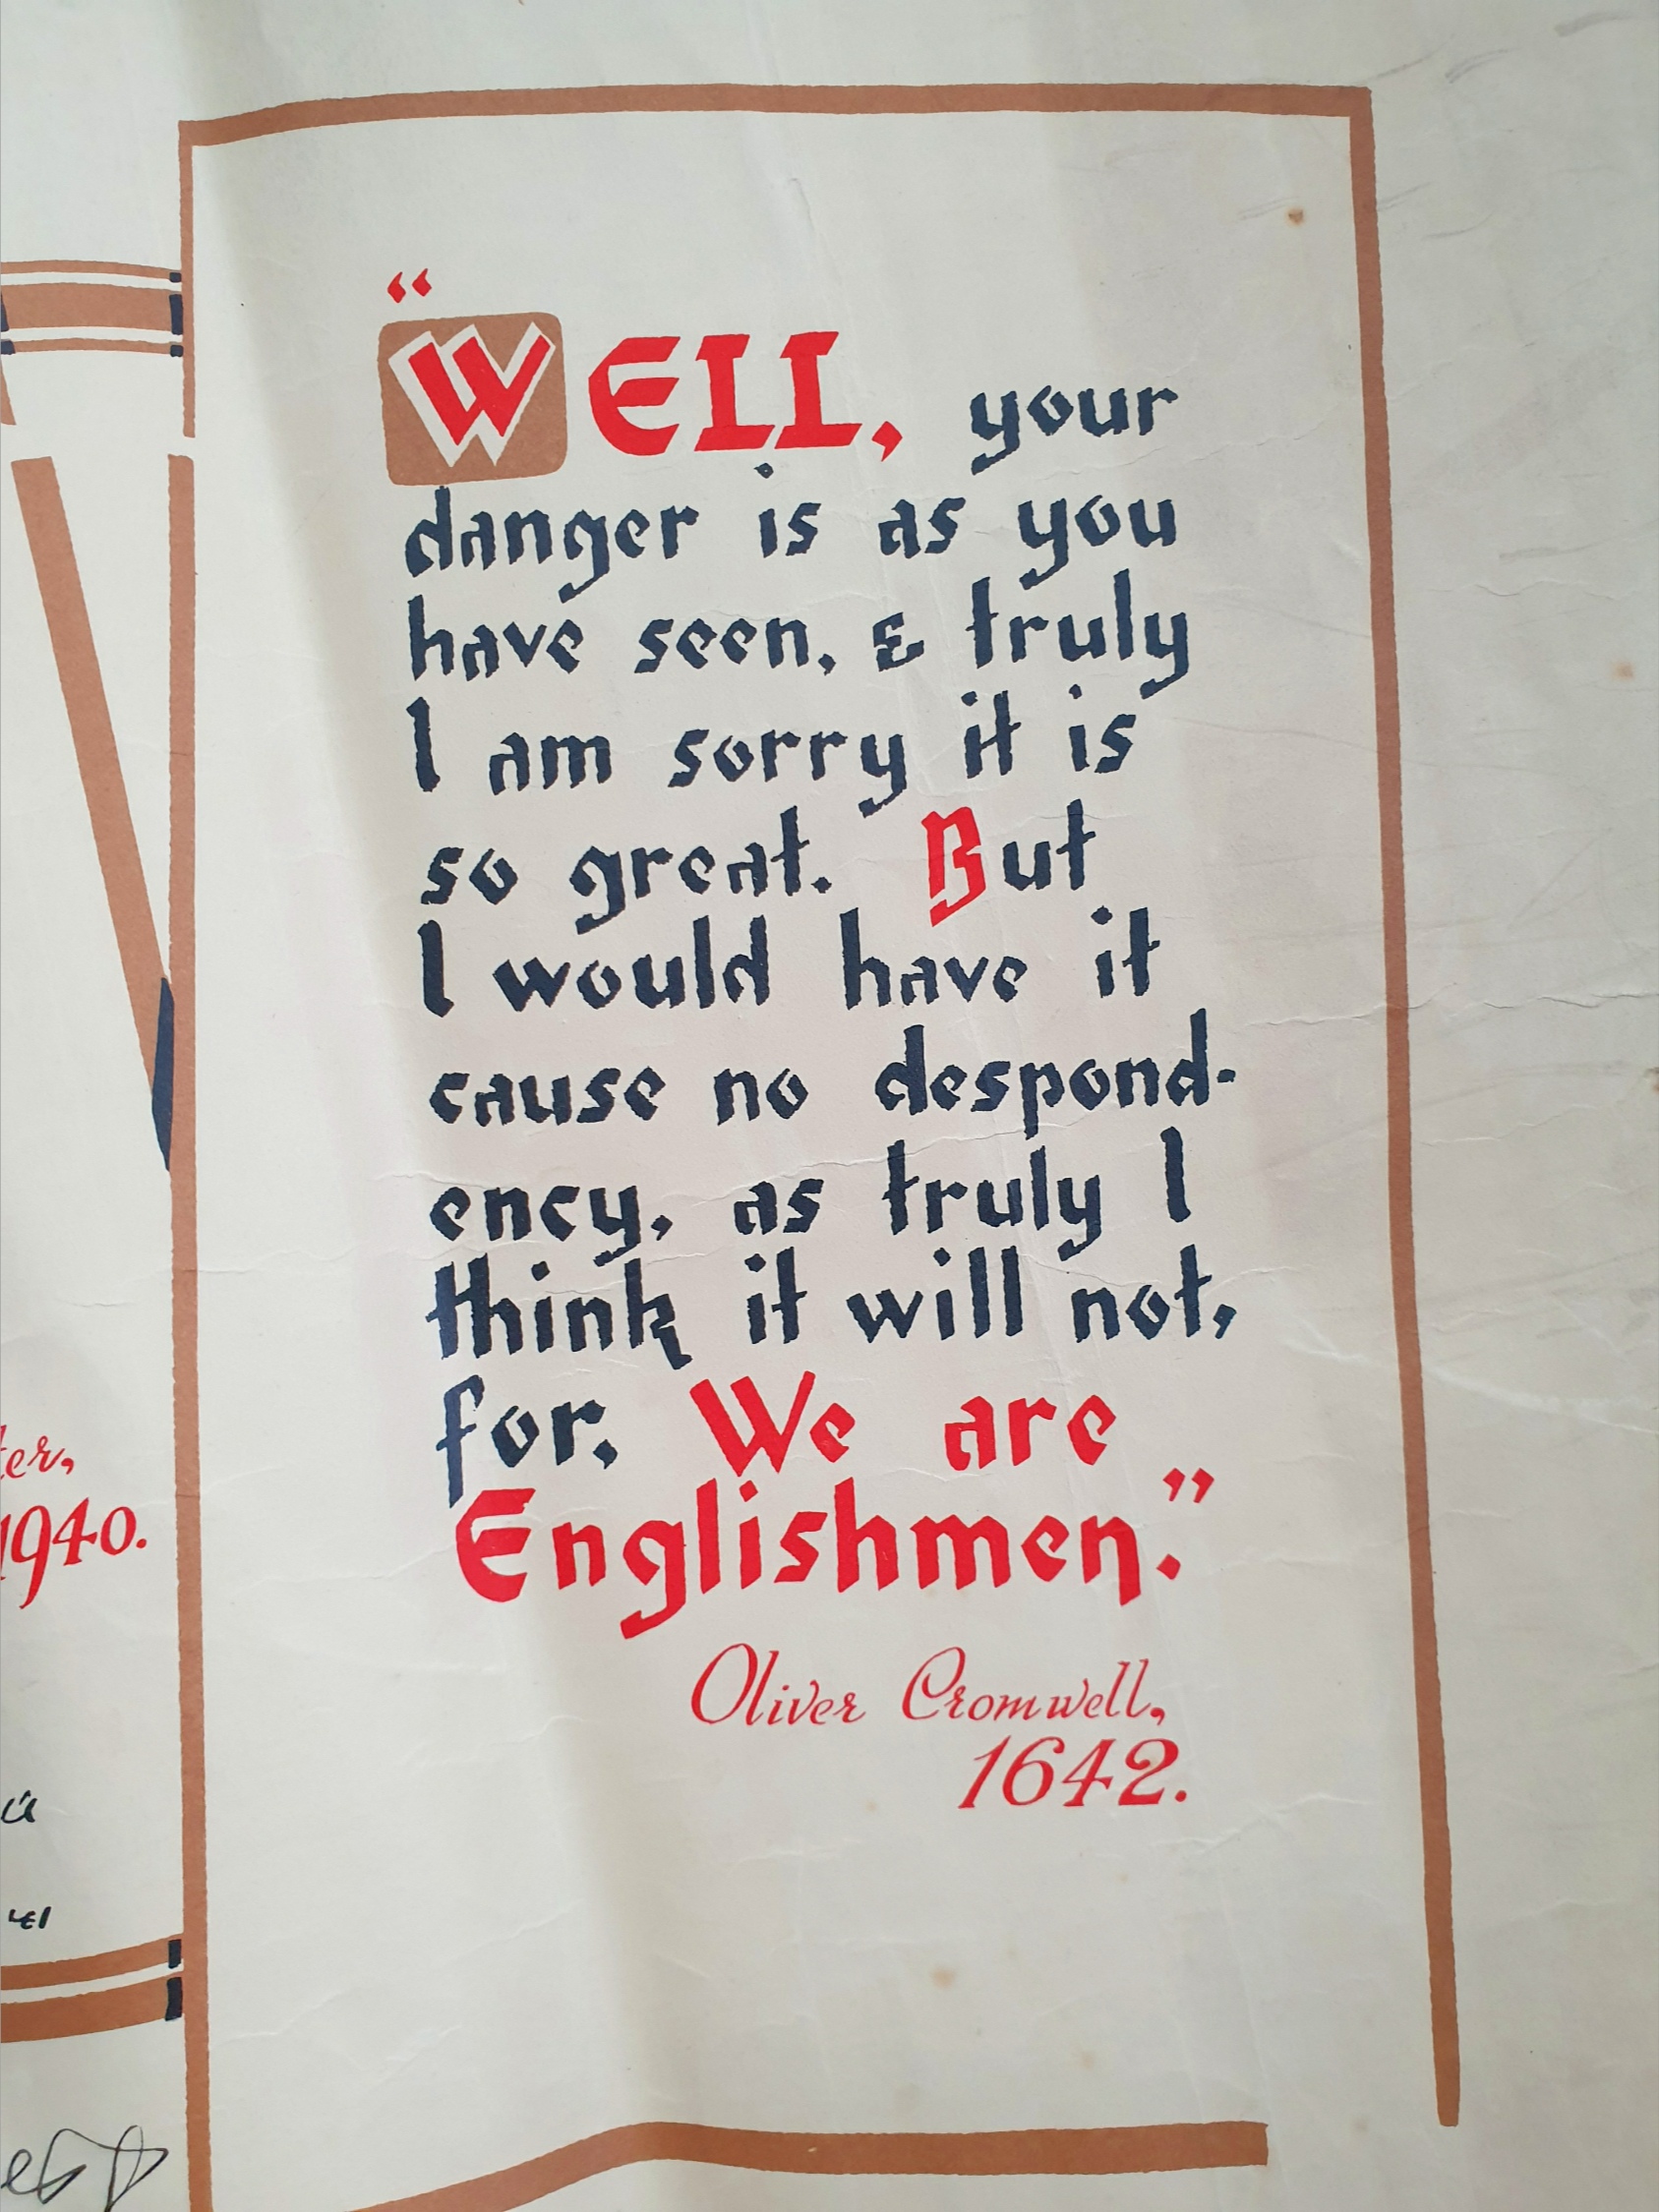 “WELL, your
danger is as you
have seen, & truly
I am sorry it is
so great. But
I would have it
cause no despond-
ency, as truly I
think it will not,
for, We are
Englishmen.”
Oliver Cromwell,
1642.
1940.